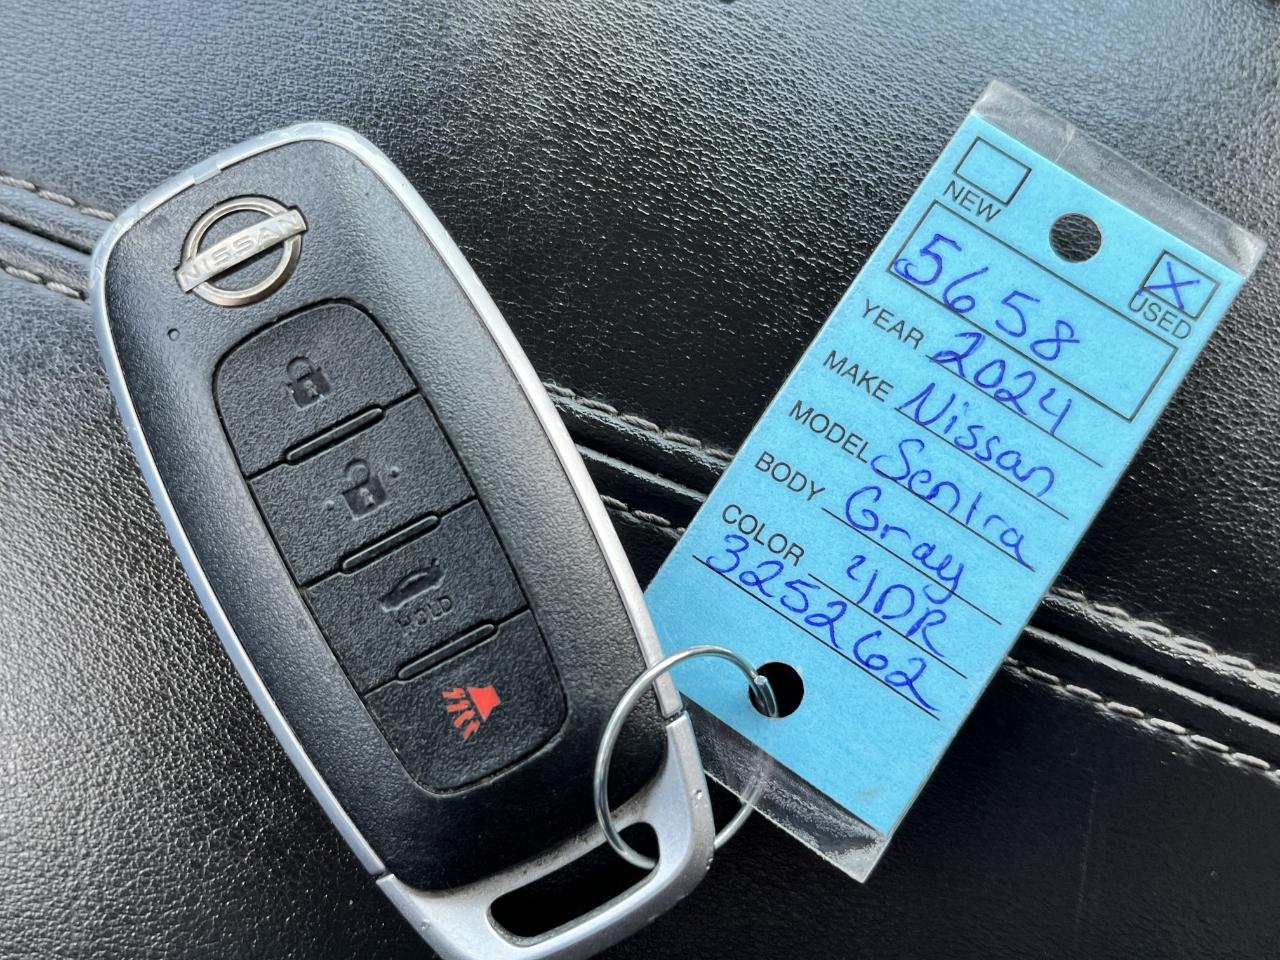 NISSAN
HOLD
NEW
X
USED
5658
YEAR 2024
MAKE Nissan
MODEL Sentra
BODY Gray
COLOR 4DR
325262